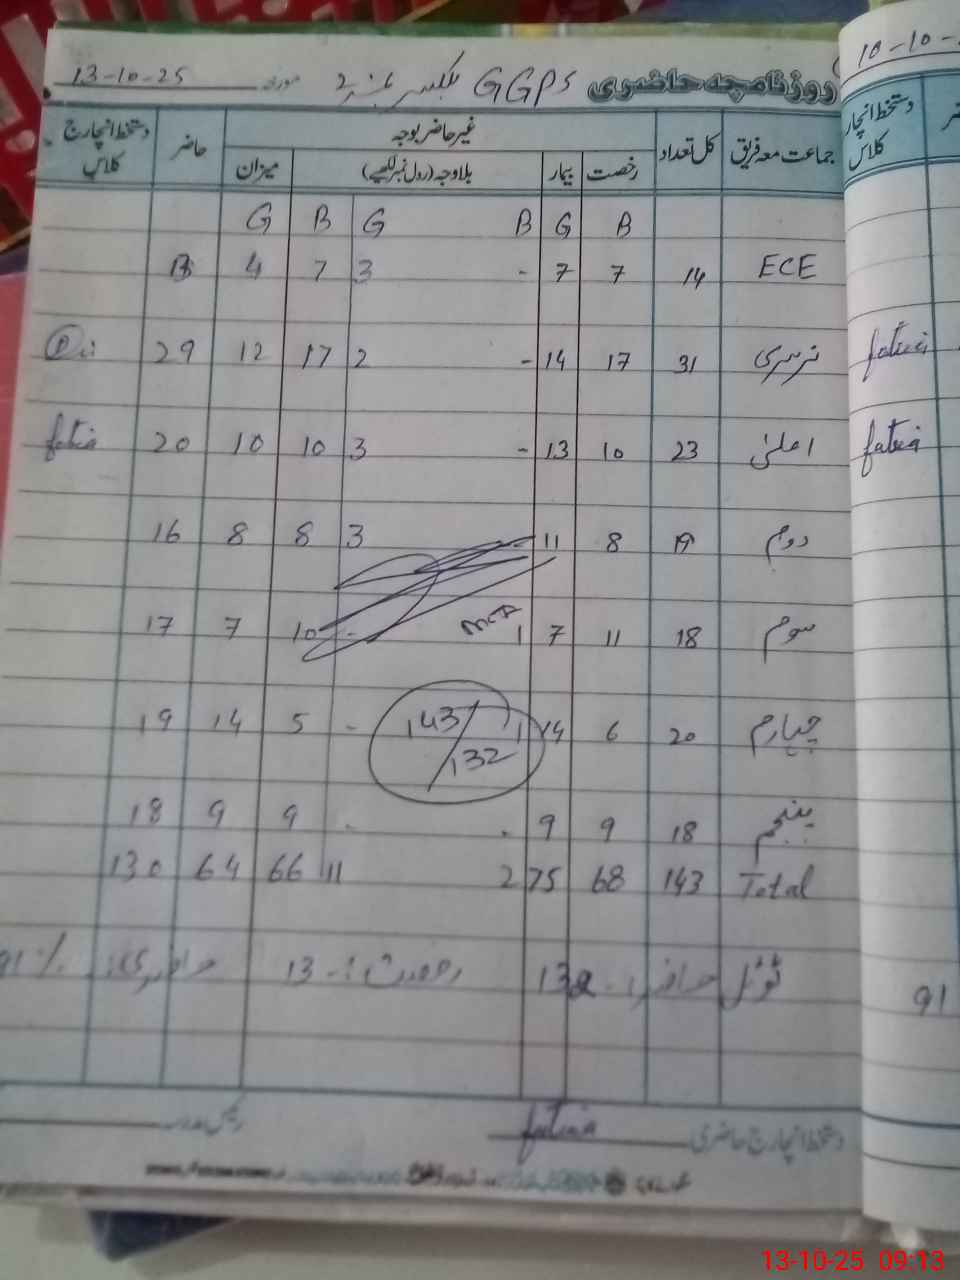 روزنامچہ حاضری GGPS نمبر 2 مورخہ 13-10-25
10-10-
جماعت معہ فریق کل تعداد غیر حاضر بوجہ حاضر دستخط انچارج کلاس
رخصت بیمار بلاوجہ (رول نمبر لکھیے) میزان
دستخط انچارج کلاس
B G B G B G
ECE 14 7 7 - 3 7 4
نرسری 31 17 14 - 2 17 12 29
اعلیٰ 23 10 13 - 3 10 10 20 fatia
دوم 19 8 11 3 8 8 16
سوم 18 11 7 1 - 10 7 17
چہارم 20 6 14 1 - 5 14 19
143/132
پنجم 18 9 9 - - 9 9 18
Total 143 68 75 2 11 66 64 130
ٹوٹل حاضر :- 132 رخصت :- 13 حاضری: 91 %
91
دستخط انچارج حاضری fatia رئیس مدرسہ
13-10-25 09:13